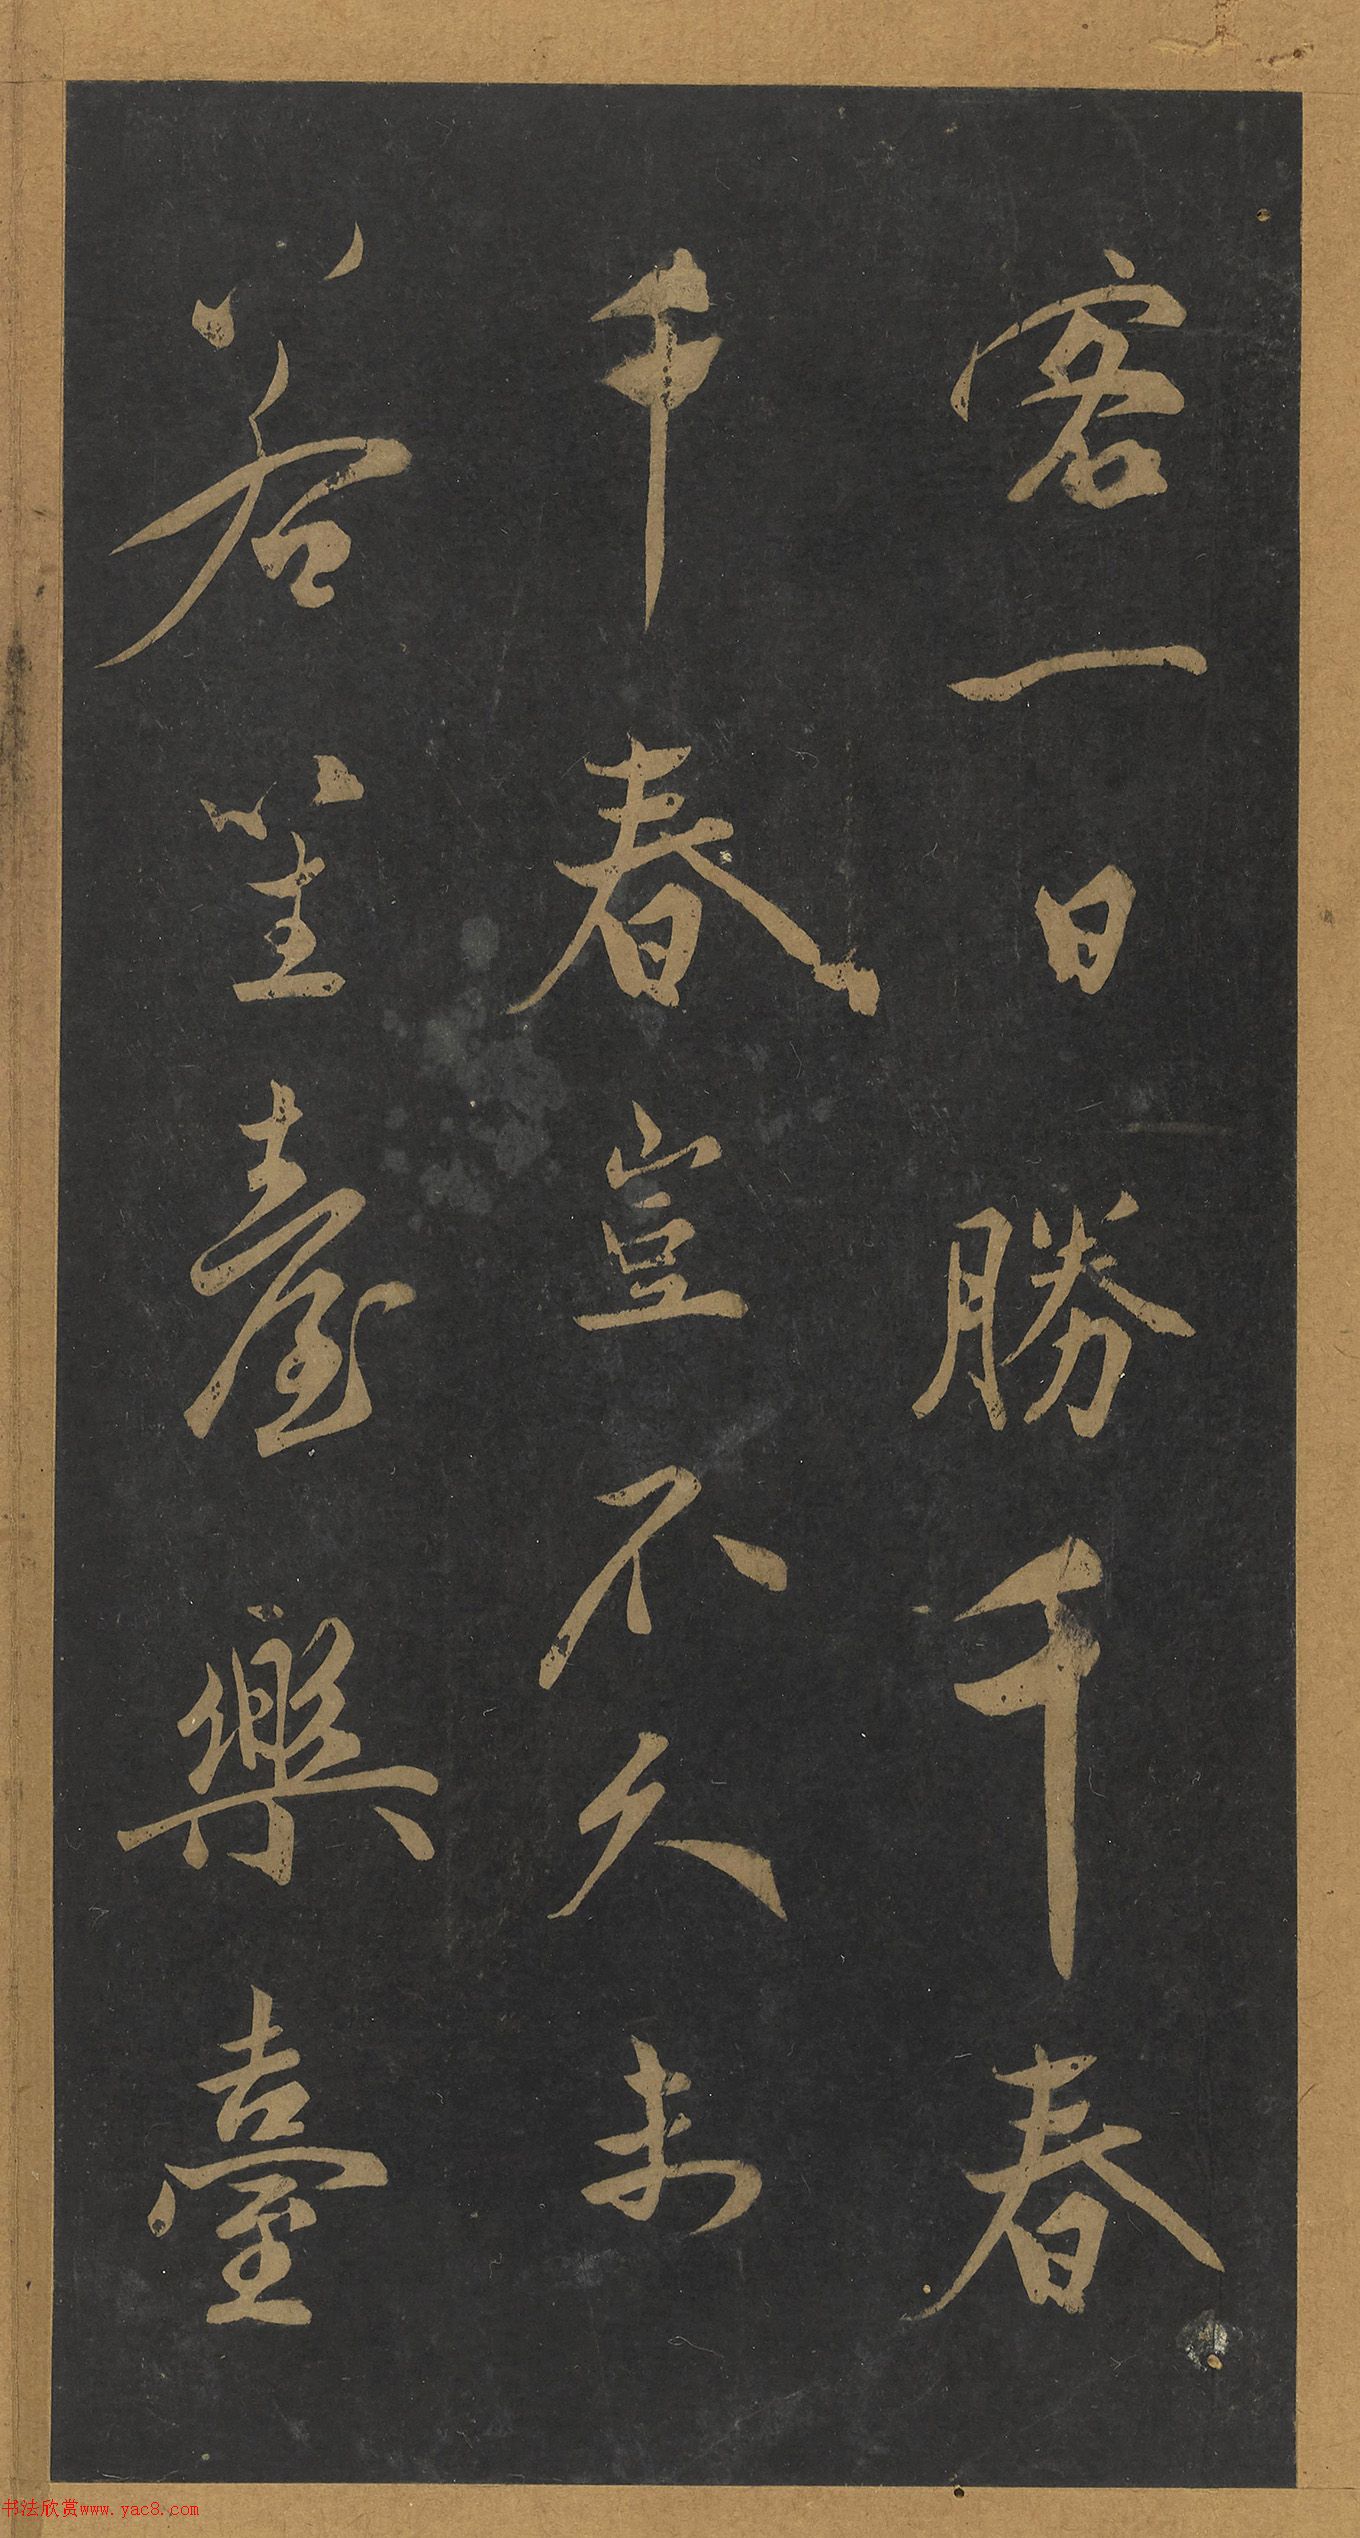 客一日勝千春
千春豈不久未
若登臺樂臺
书法欣赏www.yac8.com